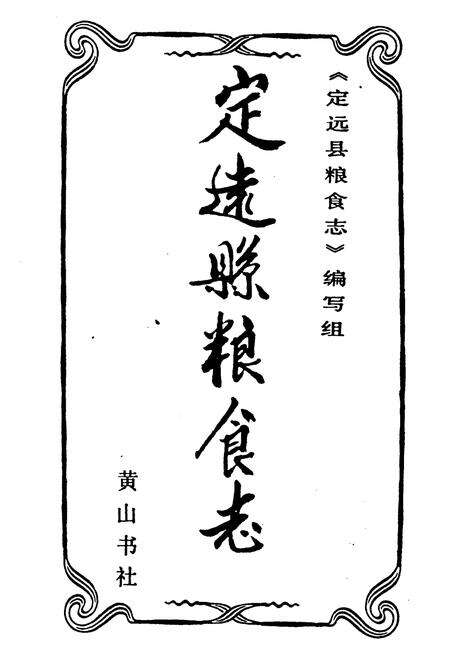 《定远县粮食志》编写组
定遠縣粮食志
黄山书社